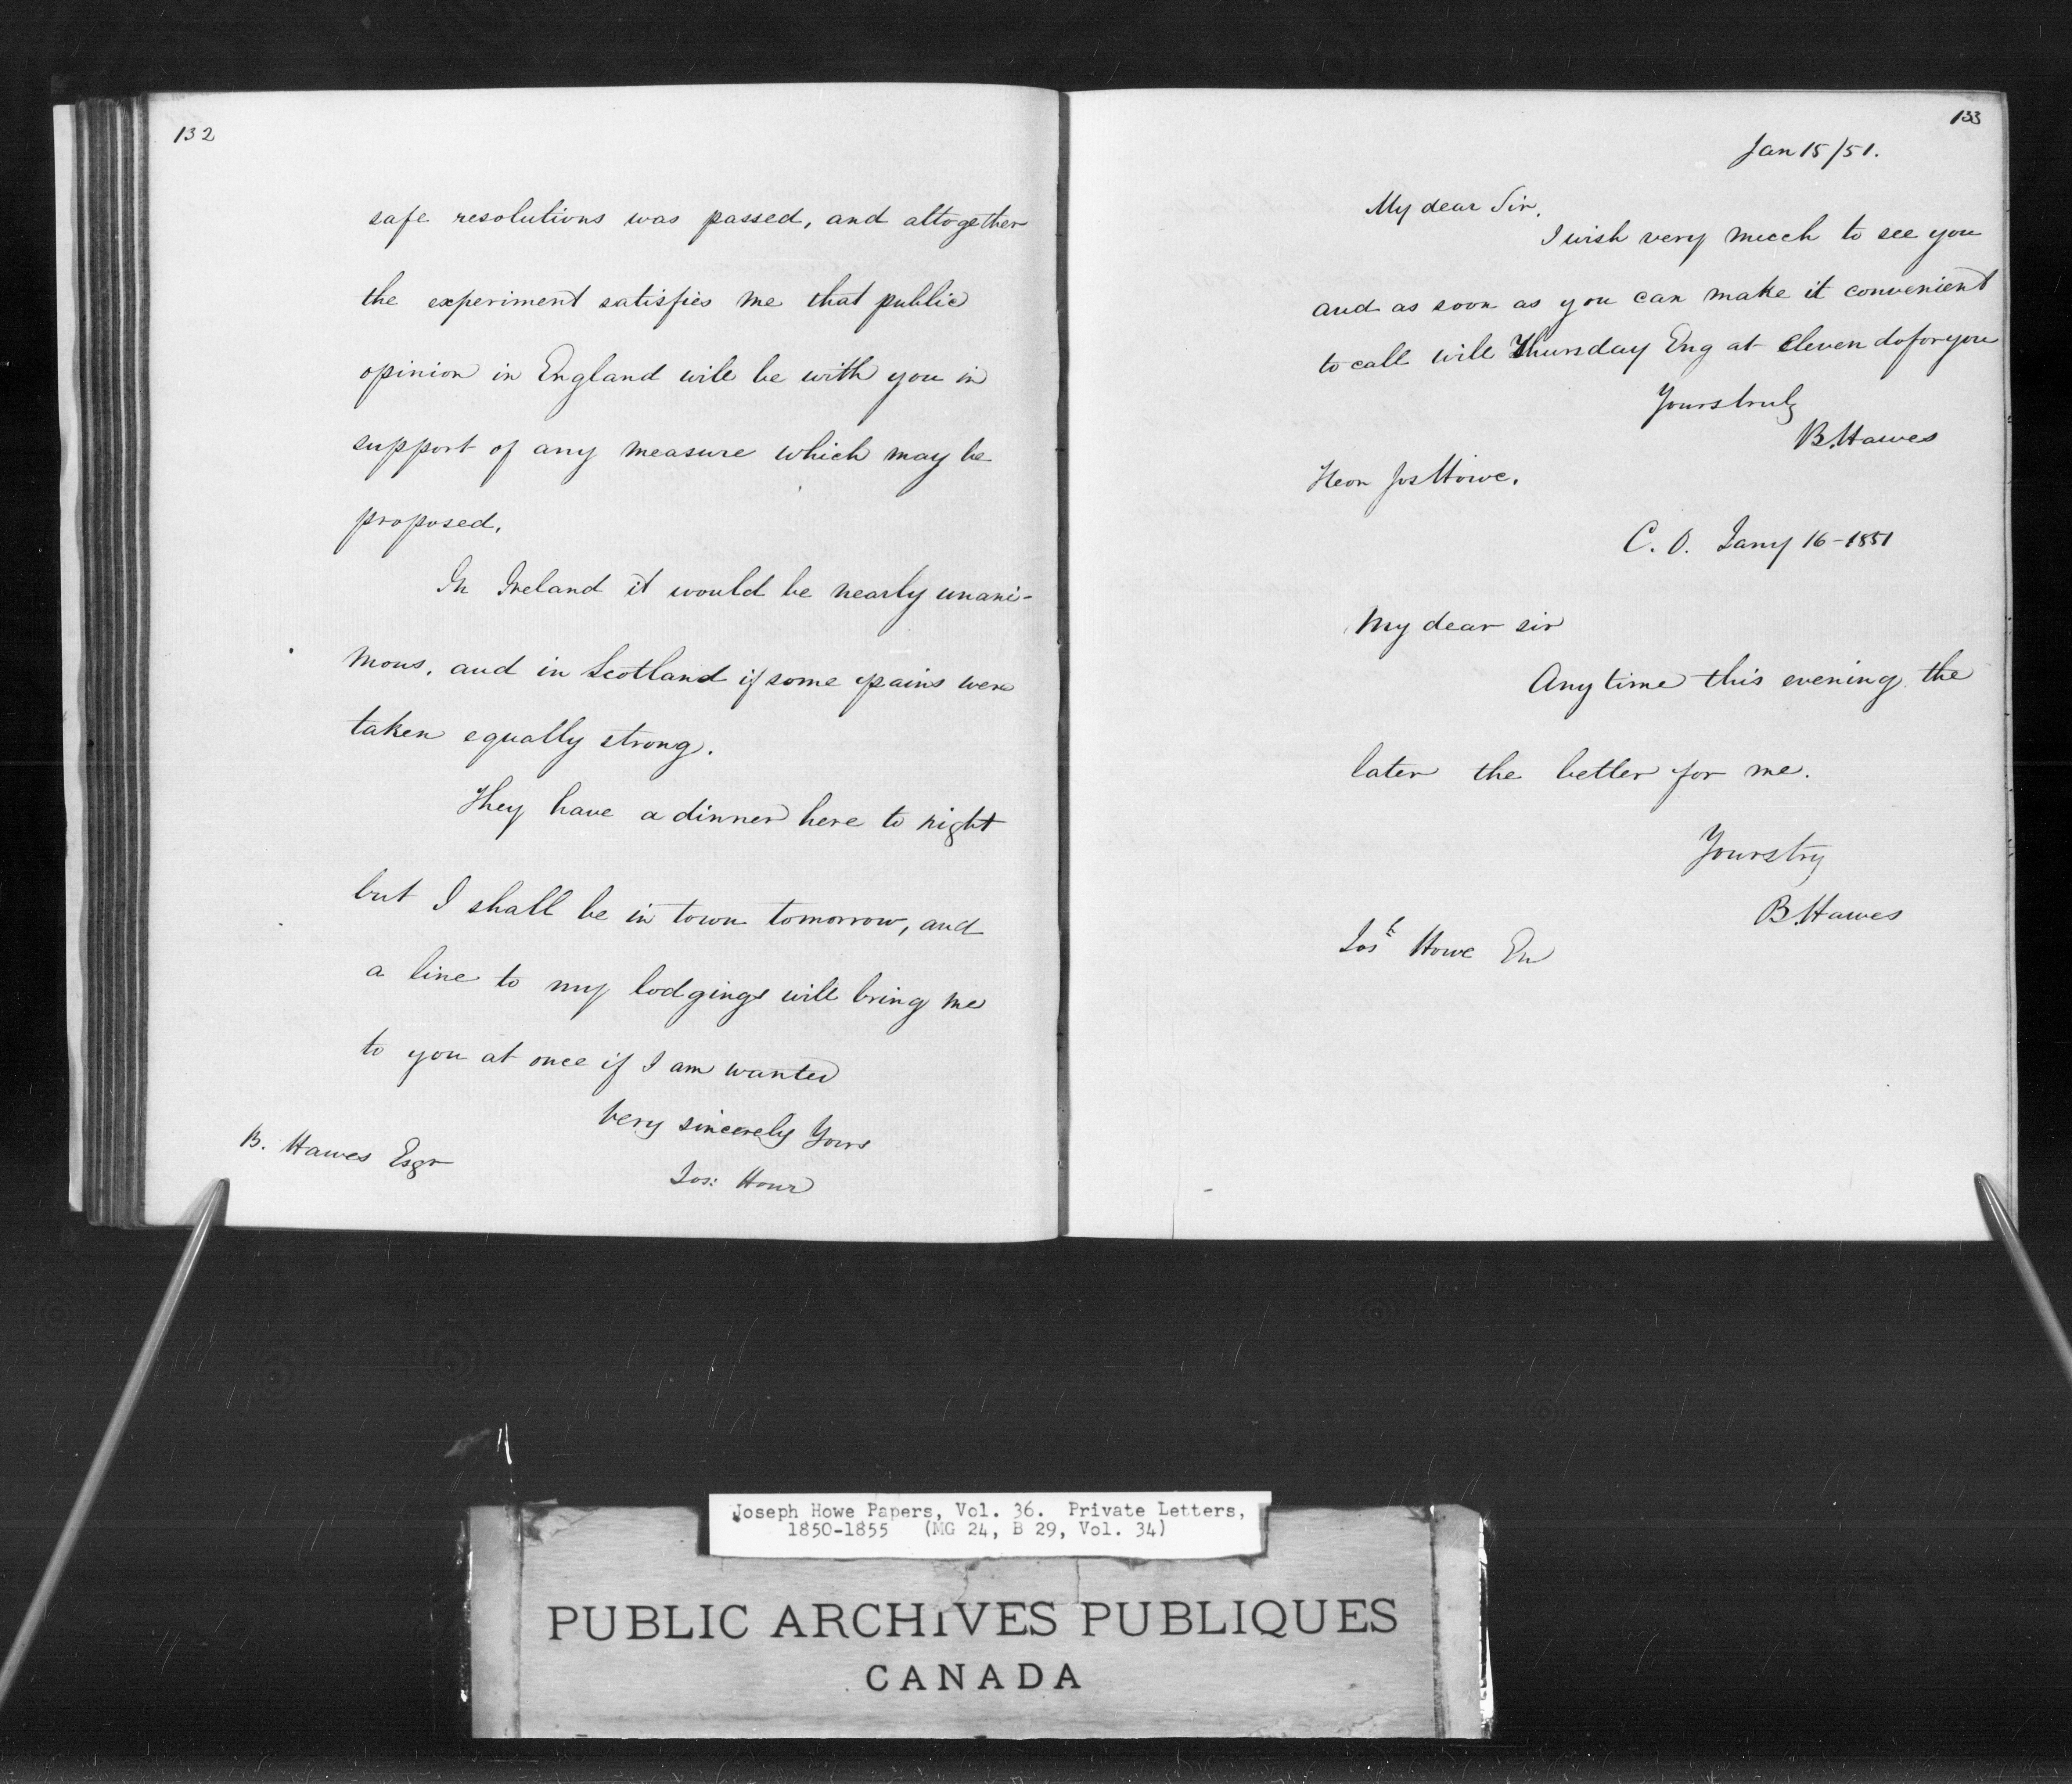 132
safe resolutions was passed, and altogether
the experiment satisfies me that public
opinion in England will be with you in
support of any measure which may be
proposed.
In Ireland it would be nearly unani-
mous, and in Scotland if some pains were
taken equally strong.
They have a dinner here to night
but I shall be in town tomorrow, and
a line to my lodgings will bring me
to you at once if I am wanted
Very sincerely Yours
B. Hawes Esqr
Jos: Howe
133
Jan 15/51.
My dear Sir,
I wish very much to see you
and as soon as you can make it convenient
to call will Thursday Eng at eleven do for you
Yours truly
B. Hawes
Hon Jos Howe.
C. O. Jany 16-1851
My dear sir
Any time this evening the
later the better for me.
Yours try
B. Hawes
Josh Howe
Joseph Howe Papers, Vol. 36. Private Letters,
1850-1855 (MG 24, B 29, Vol. 34)
PUBLIC ARCHIVES PUBLIQUES
CANADA